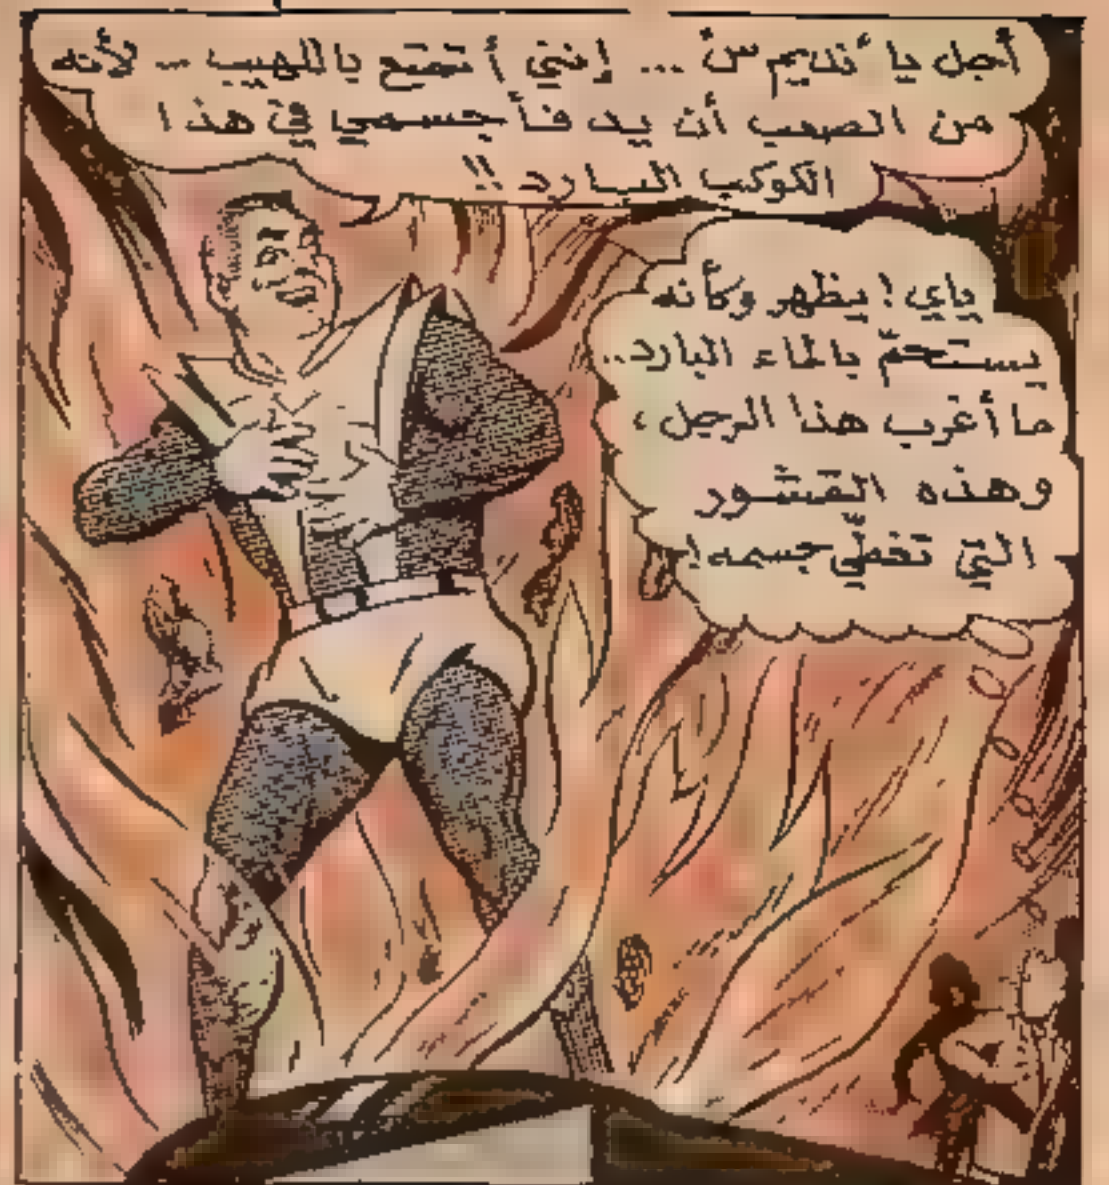 أجل يا "نديم سن" ... إنني أتمتع باللهيب -- لأنه
من الصعب أن يدفأ جسمي في هذا
الكوكب البارد !!
ياي ! يظهر وكأنه
يستحمّ بالماء البارد..
ما أغرب هذا الرجل ،
وهذه القشور
التي تغطّي جسمه !